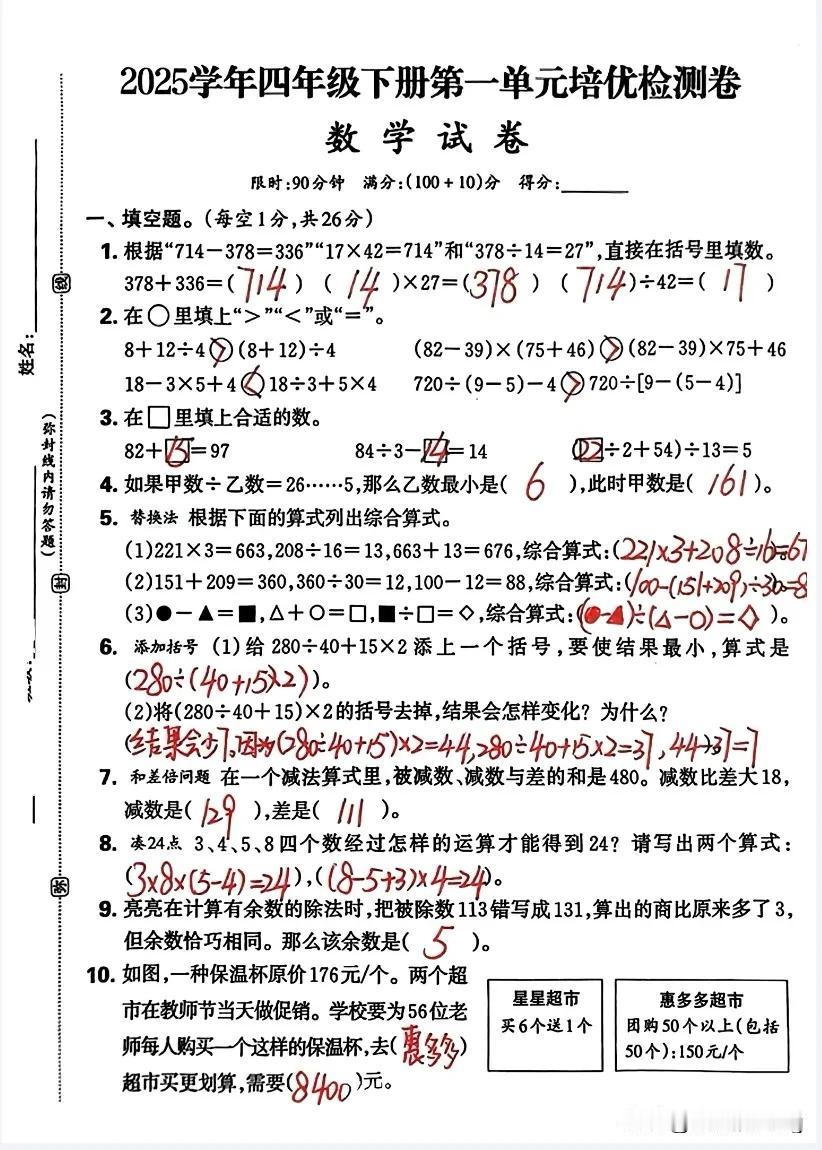 2025学年四年级下册第一单元培优检测卷
数学试卷
限时:90分钟 满分:(100+10)分 得分:
一、填空题。(每空1分,共26分)
1. 根据“714-378=336”“17×42=714”和“378÷14=27”,直接在括号里填数。
378+336=(714) (14)×27=(378) (714)÷42=(17)
2. 在○里填上“>”“<”或“=”。
8+12÷4>(8+12)÷4 (82-39)×(75+46)>(82-39)×75+46
18-3×5+4<18÷3+5×4 720÷(9-5)-4>720÷[9-(5-4)]
3. 在□里填上合适的数。
82+15=97 84÷3-14=14 (22÷2+54)÷13=5
4. 如果甲数÷乙数=26……5,那么乙数最小是(6),此时甲数是(161)。
5. 替换法 根据下面的算式列出综合算式。
(1)221×3=663,208÷16=13,663+13=676,综合算式:(221×3+208÷16=67
(2)151+209=360,360÷30=12,100-12=88,综合算式:(100-(151+209)÷30=8
(3)●-▲=■,△+○=□,■÷□=◇,综合算式:(●-▲)÷(△-○)=◇)。
6. 添加括号 (1)给280÷40+15×2添上一个括号,要使结果最小,算式是
(280÷(40+15×2))。
(2)将(280÷40+15)×2的括号去掉,结果会怎样变化?为什么?
(结果会少7。因为(280÷40+15)×2=44,280÷40+15×2=37,44-37=7
7. 和差倍问题 在一个减法算式里,被减数、减数与差的和是480。减数比差大18,
减数是(129),差是(111)。
8. 凑24点 3、4、5、8四个数经过怎样的运算才能得到24?请写出两个算式:
(3×8×(5-4)=24),((8-5+3)×4=24)。
9. 亮亮在计算有余数的除法时,把被除数113错写成131,算出的商比原来多了3,
但余数恰巧相同。那么该余数是(5)。
10. 如图,一种保温杯原价176元/个。两个超
市在教师节当天做促销。学校要为56位老
师每人购买一个这样的保温杯,去(惠多多)
超市买更划算,需要(8400)元。
星星超市
买6个送1个
惠多多超市
团购50个以上(包括
50个):150元/个
姓名:
(弥封线内请勿答题)
密
封